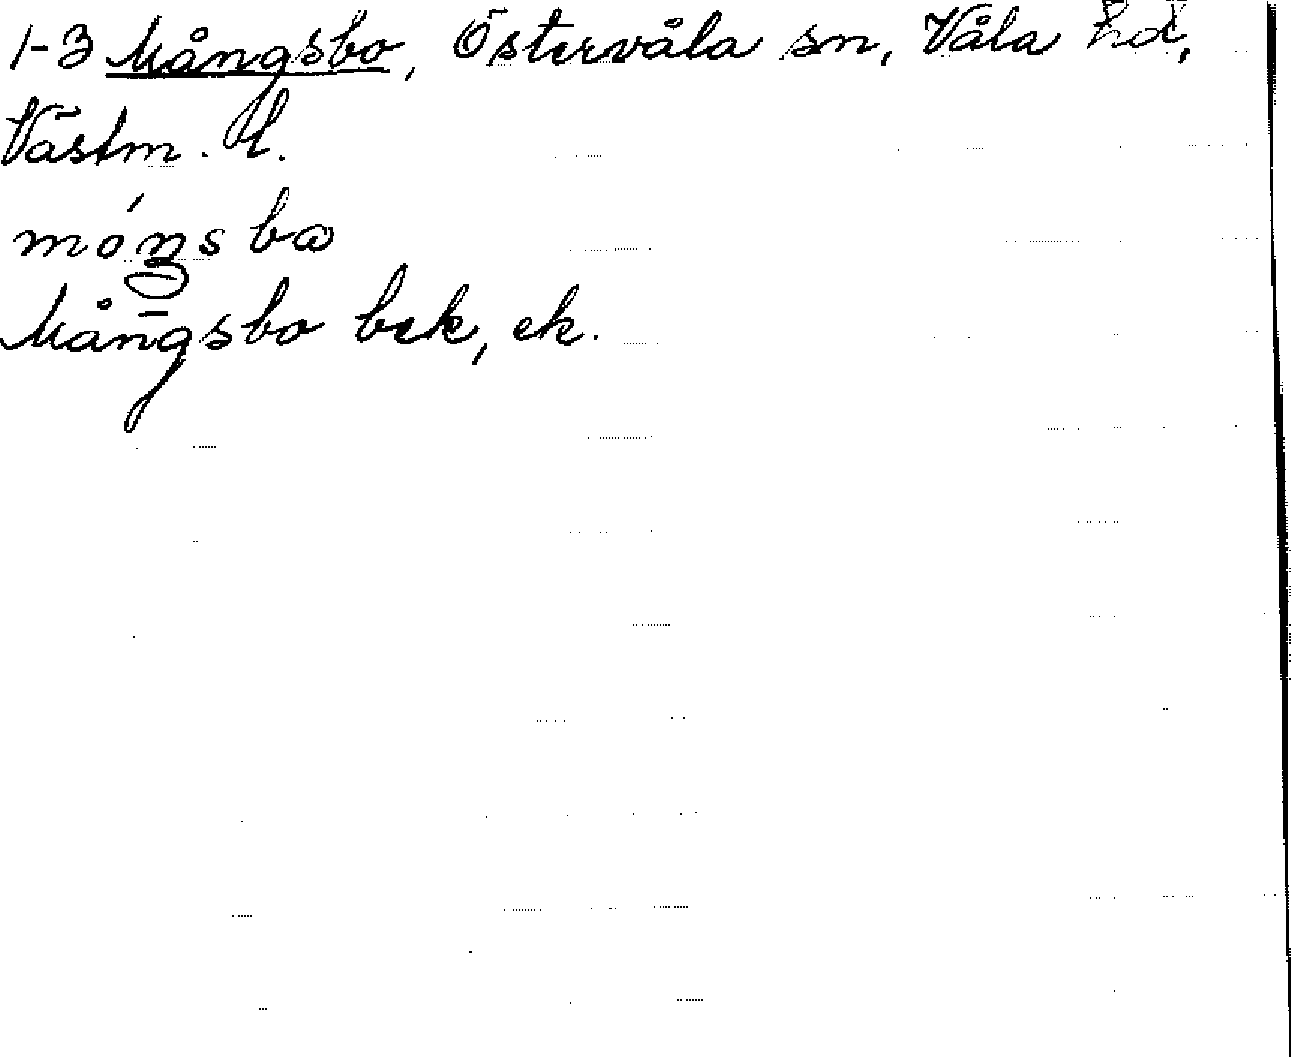 1-3 Mångsbo, Östervåla sn, Våla hd,
Västm. l.
móŋs bω
Mångsbo bek, ek.